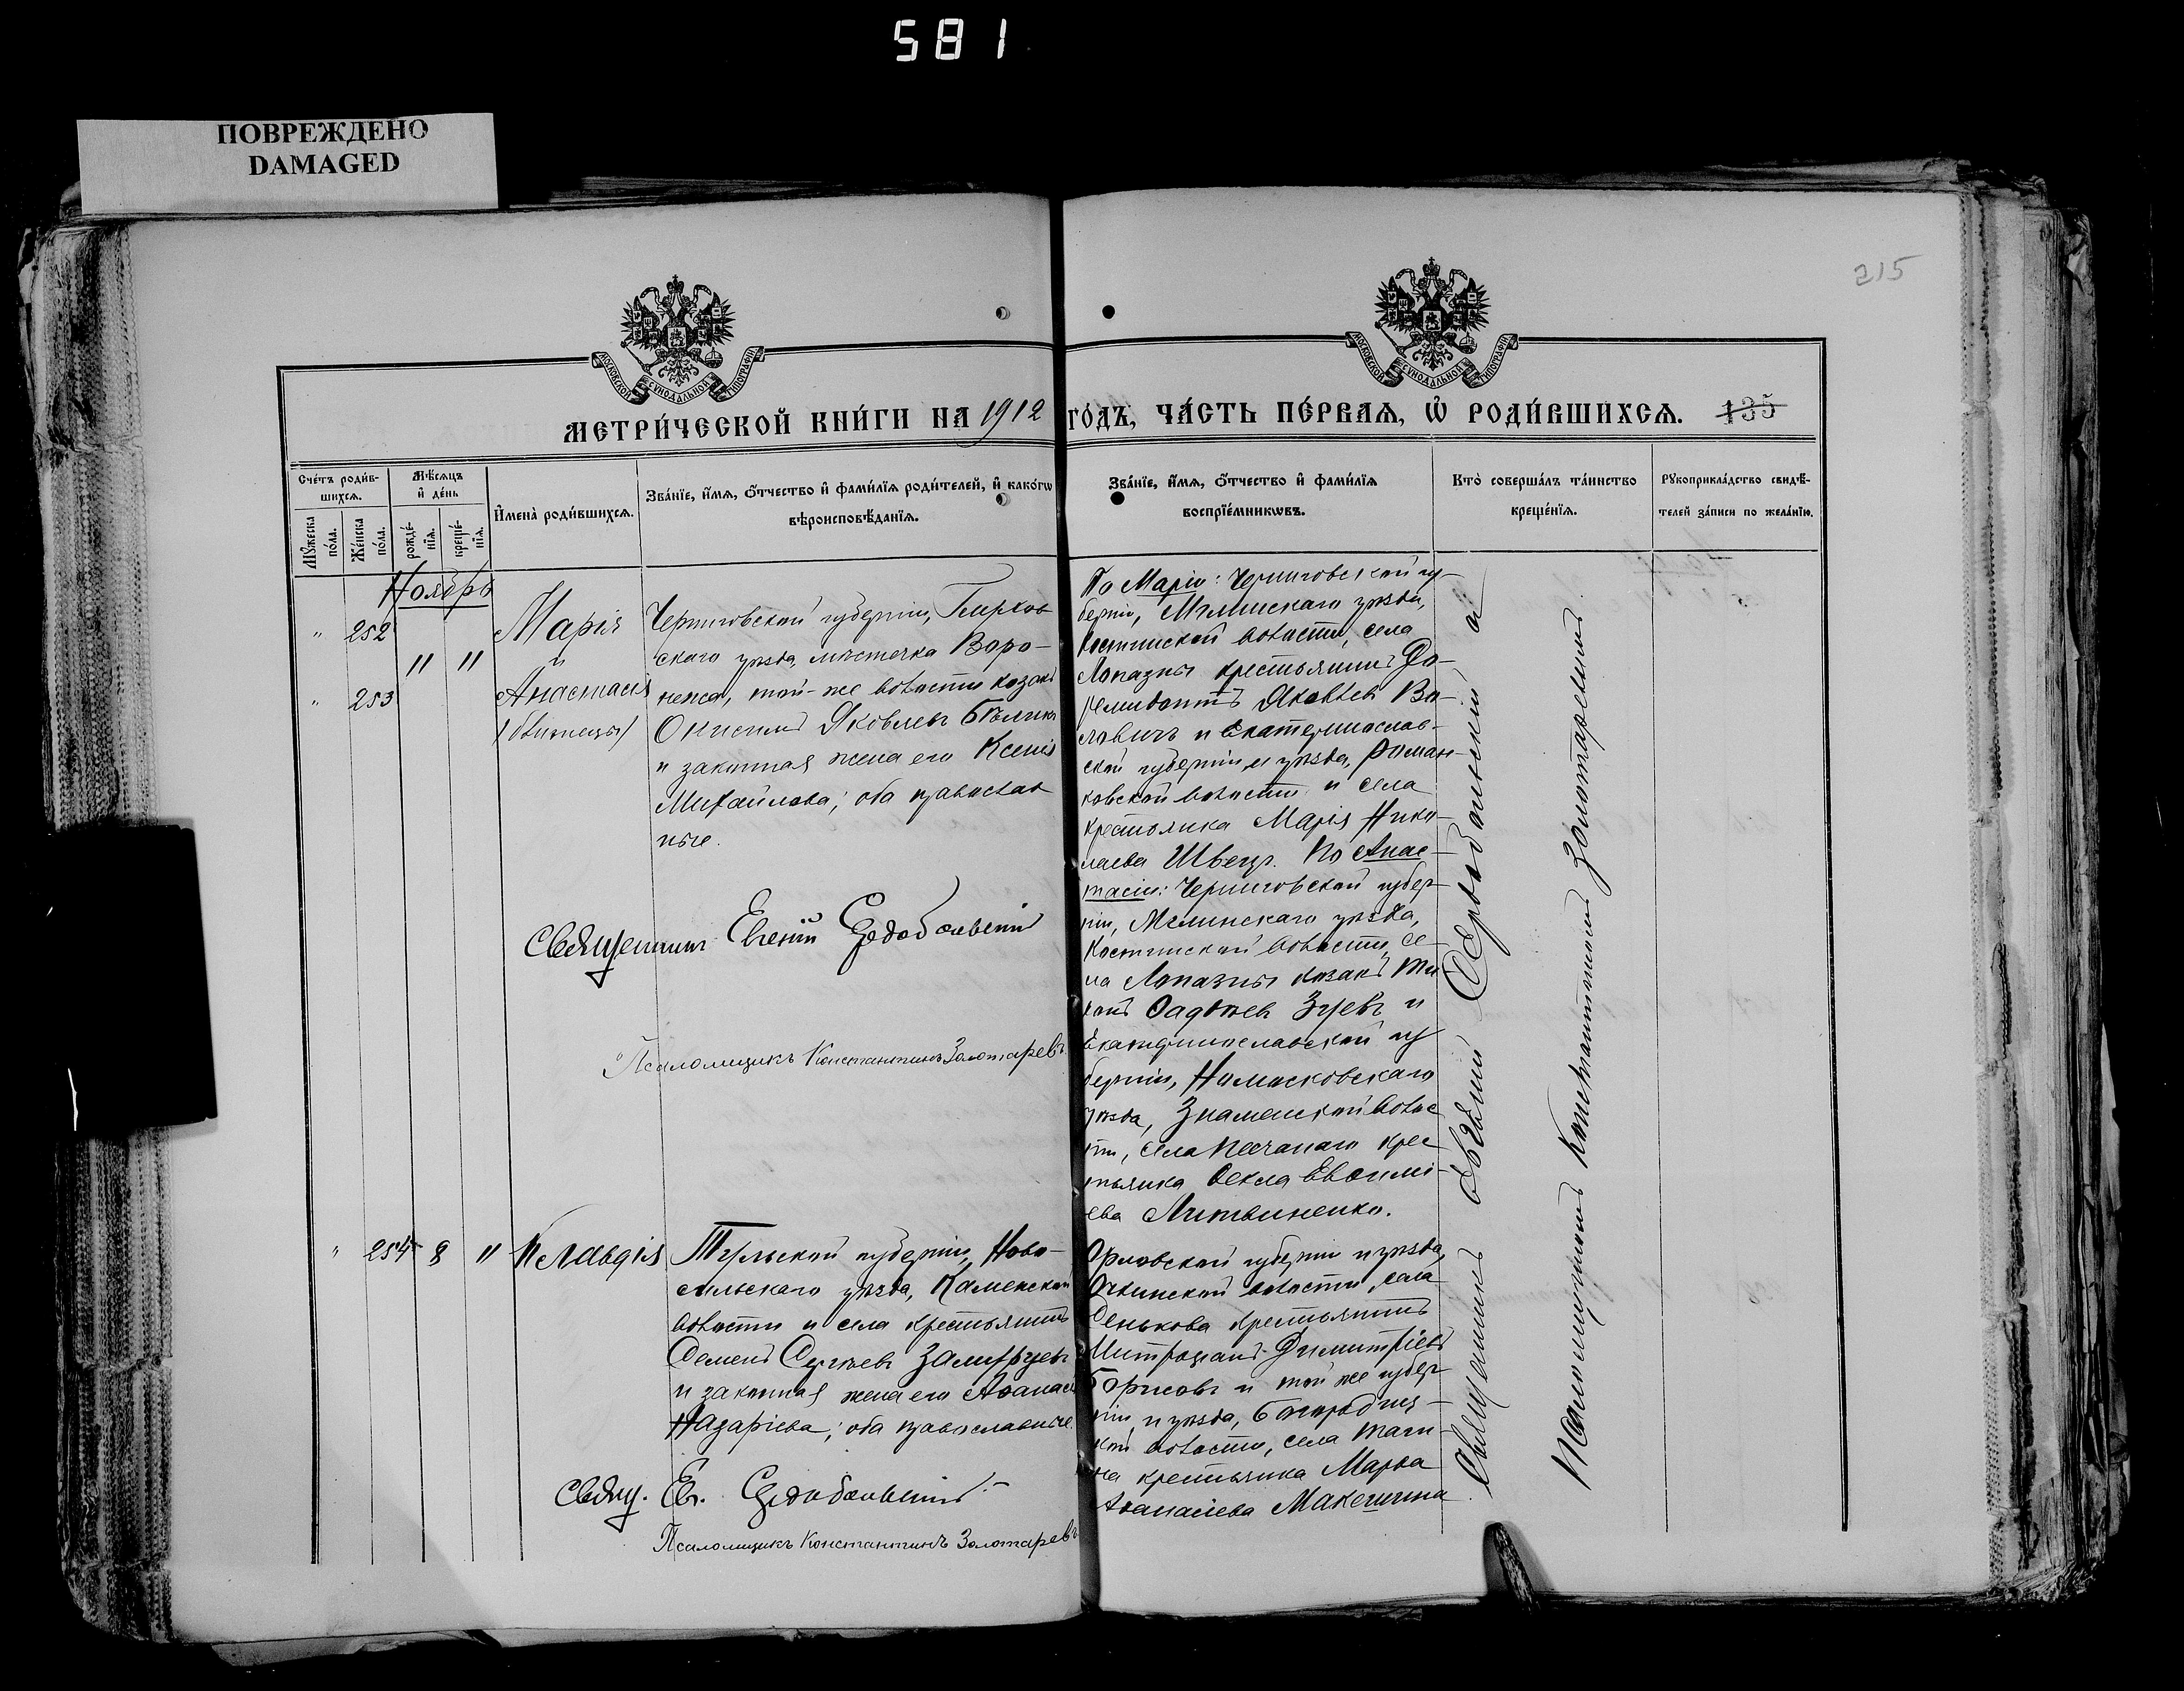 581
ПОВРЕЖДЕНО
DAMAGED
215
МОСКОВСКОЙ СѴНОДАЛЬНОЙ ТИПОГРАФІИ
МОСКОВСКОЙ СѴНОДАЛЬНОЙ ТИПОГРАФІИ
МЕТРИ́ЧЕСКОЙ КНИ́ГИ НА 1912 ГО́ДЪ, ЧА́СТЬ ПЕ́РВАѦ, Ѿ РОДИ́ВШИХСѦ. 135
Сче́тъ роди́в-
шихсѧ.
Мꙋ́жеска по́ла.
Же́нска по́ла.
Мѣ́сѧцъ и҆ де́нь
рожде́-нїѧ.
креще́-нїѧ.
И҆мена̀ роди́вшихсѧ.
Зва́нїе, и҆́мѧ, ѻ҆́тчество и҆ фами́лїѧ роди́телей, и҆ како́гѡ
вѣроисповѣ́данїѧ.
Зва́нїе, и҆́мѧ, ѻ҆́тчество и҆ фами́лїѧ
воспрїе́мникѡвъ.
Кто̀ соверша́лъ та́инство
креще́нїѧ.
Рꙋкоприкла́дство свидѣ́-
телей за́писи по жела́нїю.
Ноябрь
" 252
" 253
11 11
Марія
и
Анастасія
/близнецы/
Черниговской губерніи,
скаго уѣзда, мѣстечка Воро-
нежа, той-же волости козакъ
Онисимъ Яковлевъ Бѣликъ
и законная жена его Ксенія
Михайлова; оба православ
ные.
Священникъ Евгеній Сердобольскій
Псаломщикъ Константинъ Золотаревъ
По Маріи: Черниговской гу-
берніи, Мглинскаго уѣзда,
Костинской волости, села
Лопазны крестьянинъ До-
Яковлев Ва-
ловичъ и Екатеринослав-
ской губерніи и уѣзда, Роман-
ковской волости и села
крестьянка Марія Нико-
лаева Швецъ. По Анас-
тасіи: Черниговской губер-
ніи, Мглинскаго уѣзда,
Костинской волости, се-
ла Лопазны козакъ Ти-
хонъ Фадѣев Зуевъ и
Екатеринославской гу
берніи, Новомосковскаго
уѣзда, Знаменской волос
ти, села Песчанаго крес
тьянка Ѳекла Евѳимі-
ева Литвиненко.
Священникъ Евгеній Сердобольскій а
Псаломщикомъ Константиномъ Золотаревымъ.
" 254 8 11 Клавдія
Тульской губерніи, Ново-
сильскаго уѣзда, Каменской
волости и села крестьянинъ
Семенъ Сергѣевъ
и законная жена его Аѳанас
Назаріева; оба православные.
Свящ. Ев. Сердобольскій.–
Псаломщикъ Константинъ Золотаревъ
Орловской губерніи и уѣзда,
волости, села
Сенькова крестьянинъ
Митрофанъ Димитріевъ
Борисовъ и той же губер
ніи и уѣзда,
кой волости, села Таги-
на крестьянка Марѳа
Аѳанасіева